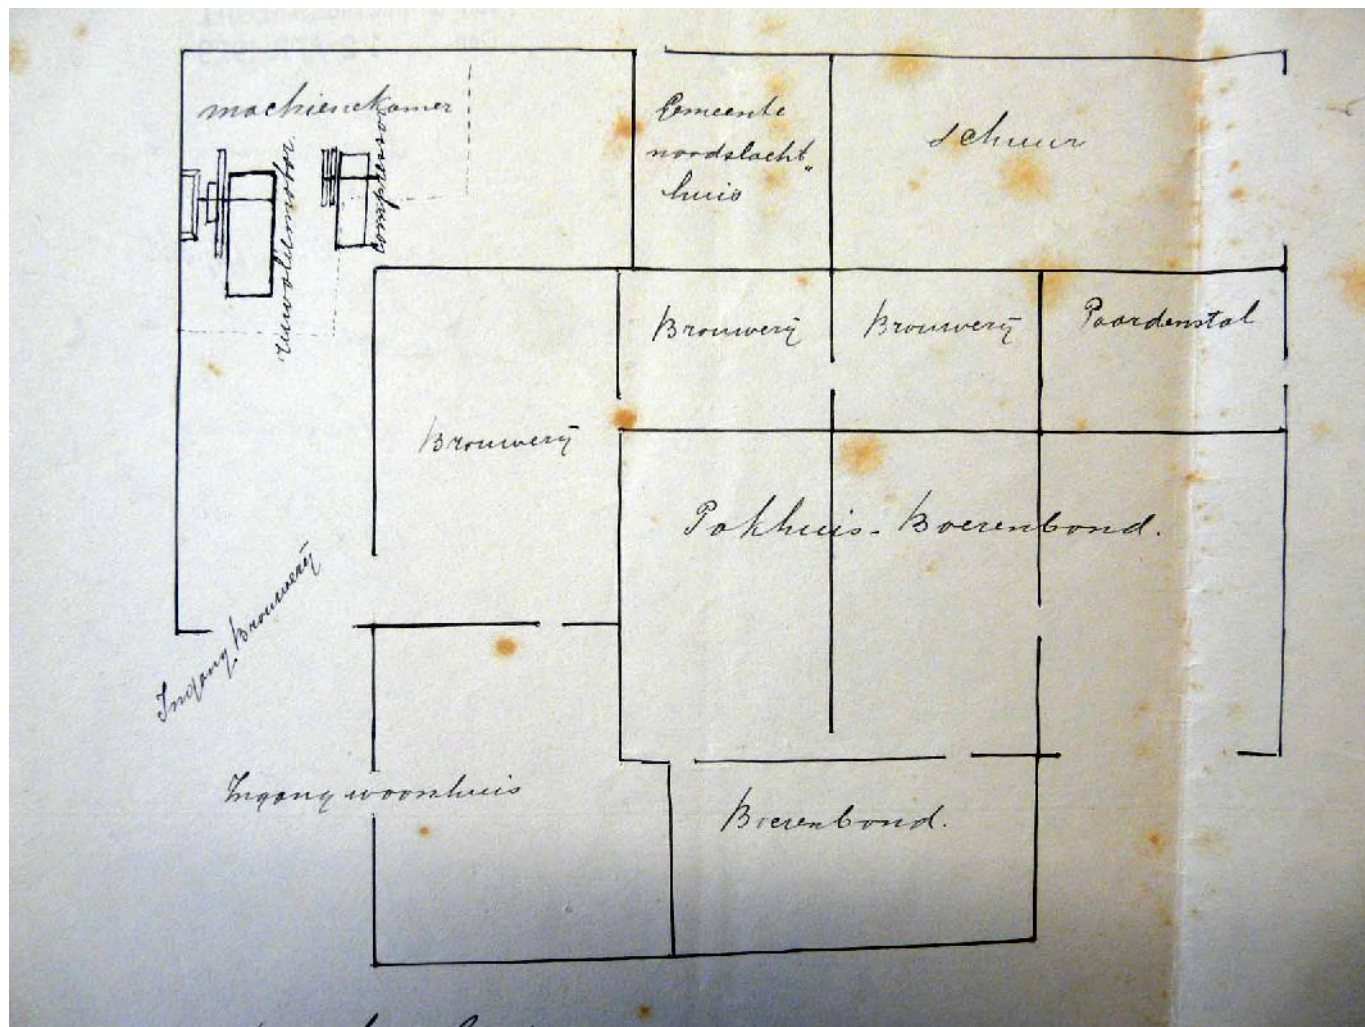 machienekamer
ruwoliemotor
compressor
Gemeente
noodslacht"
huis
schuur
Brouwerij
Brouwerij
Paardenstal
Brouwerij
Pakhuis - Boerenbond.
Ingang Brouwerij
Ingang woonhuis
Boerenbond.